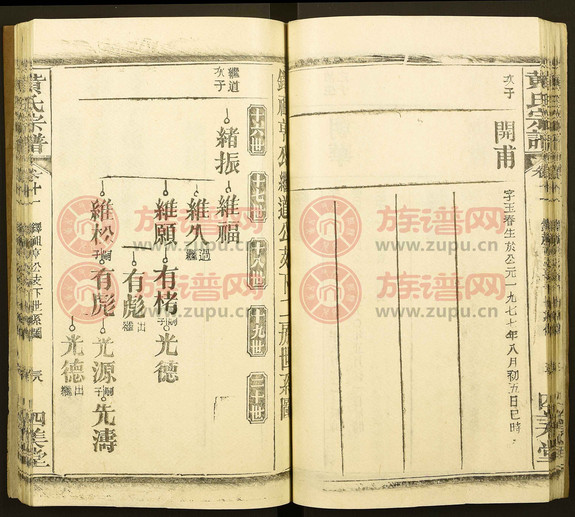 黃氏宗譜
卷十一
四美堂
次子
開甫
字玉春生於公元一九七七年八月初五日巳時
十六世
十七世
十八世
十九世
二十世
繼道
次子
緒振
維福
維久
過繼
維願
有栲
嗣子
光德
有彪
出繼
維松
嗣子
有彪
光源
嗣子
先濤
光德
出繼
黃氏宗譜
卷十一
四美堂
族谱网
www.zupu.cn
族谱网
www.zupu.cn
族谱网
www.zupu.cn
族谱网
www.zupu.cn